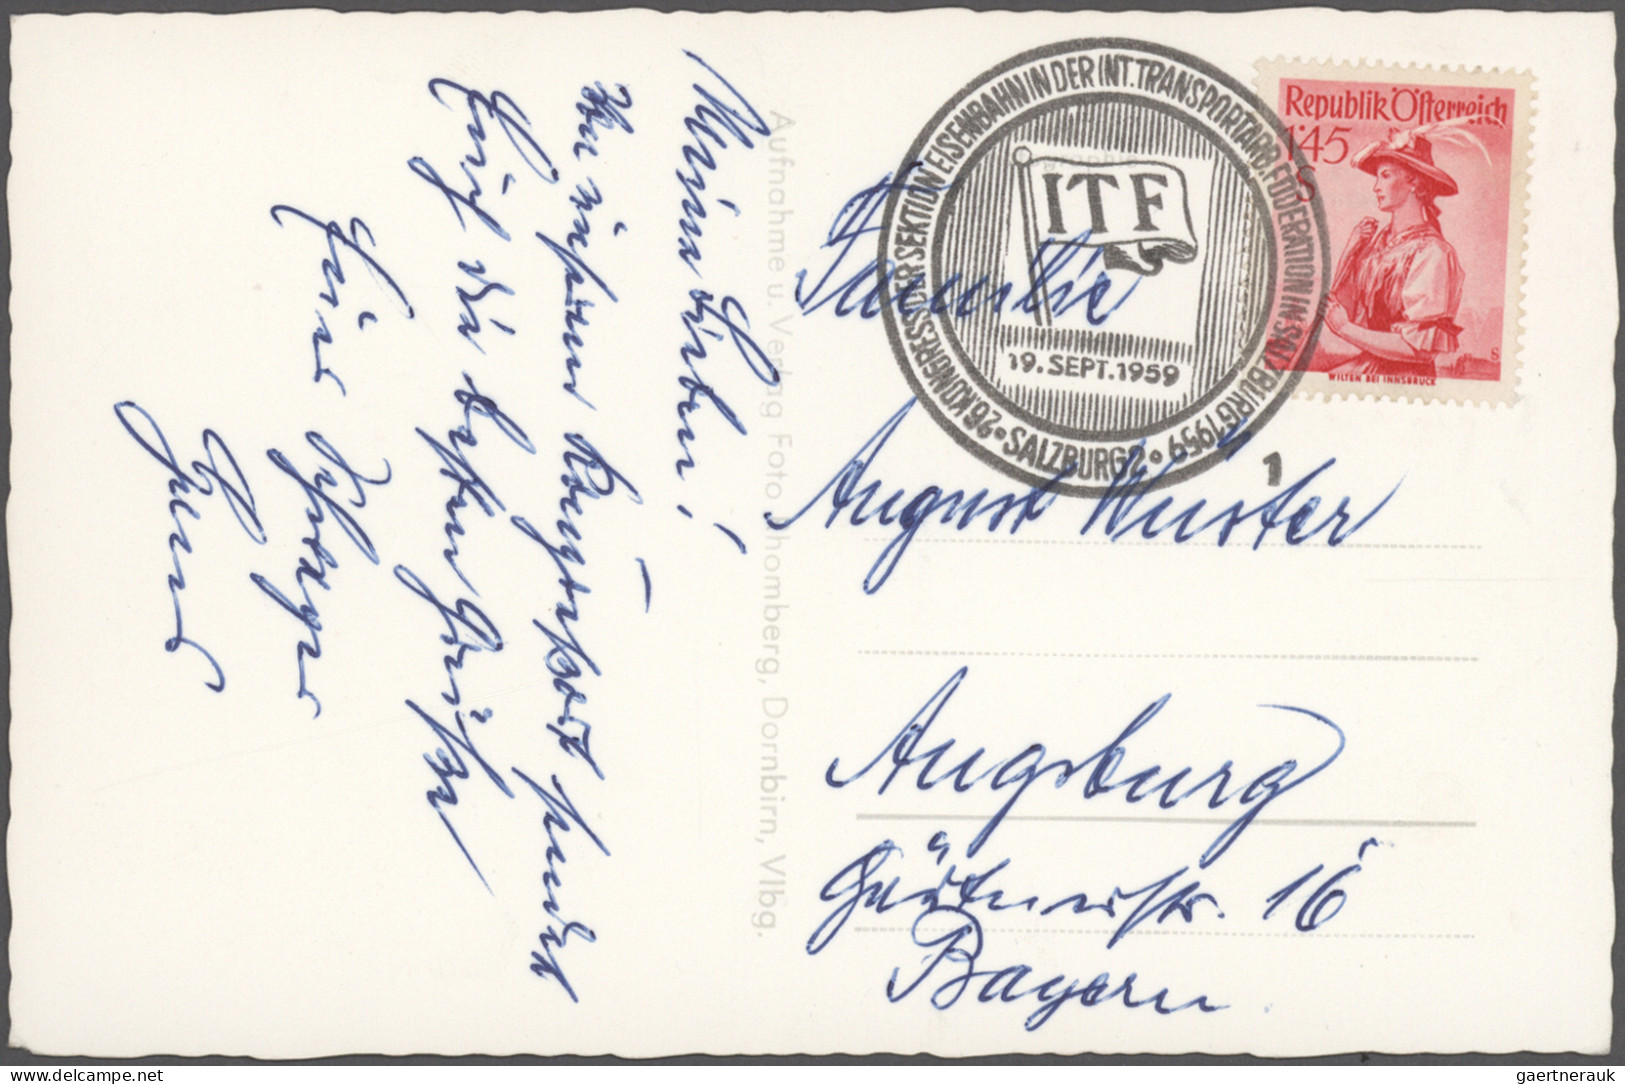 Meine Lieben!
Von unserem Kongressort sendet
Euch die besten Grüße
Euer Schwager
Aufnahme u. Verlag Foto Rhomberg, Dornbirn, Vlbg.
26. KONGRESS DER SEKTION EISENBAHN IN DER INT. TRANSPORTARB. FÖDERATION IN SALZBURG 1959
ITF
19. SEPT. 1959
SALZBURG 2
1
Republik Österreich
1'45
S
WILTEN BEI INNSBRUCK
S
Familie
August Wuster
Augsburg
Gärtnerstr. 16
Bayern
gaertnerauk
delcampe.net